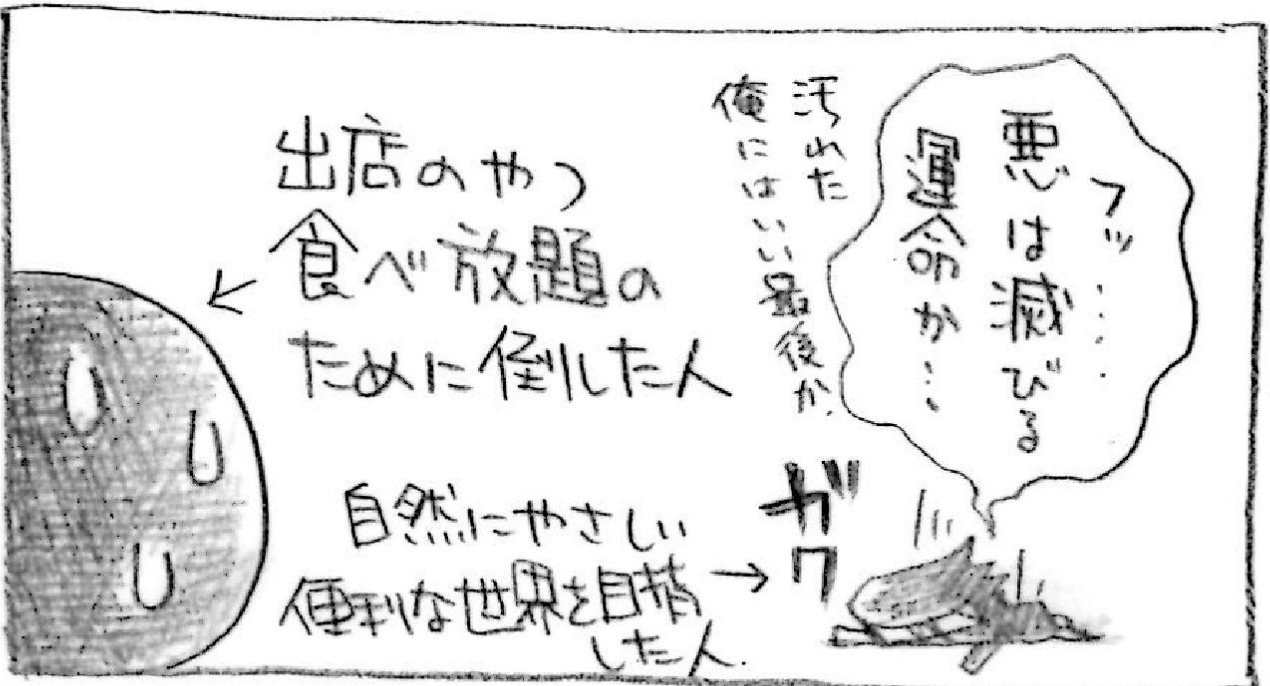 フッ……
悪は滅びる
運命か…
汚れた
俺にはいい最後か、
ガク
出店のやつ
食べ放題の
ために倒した人
自然にやさしい
便利な世界を目指
した人.